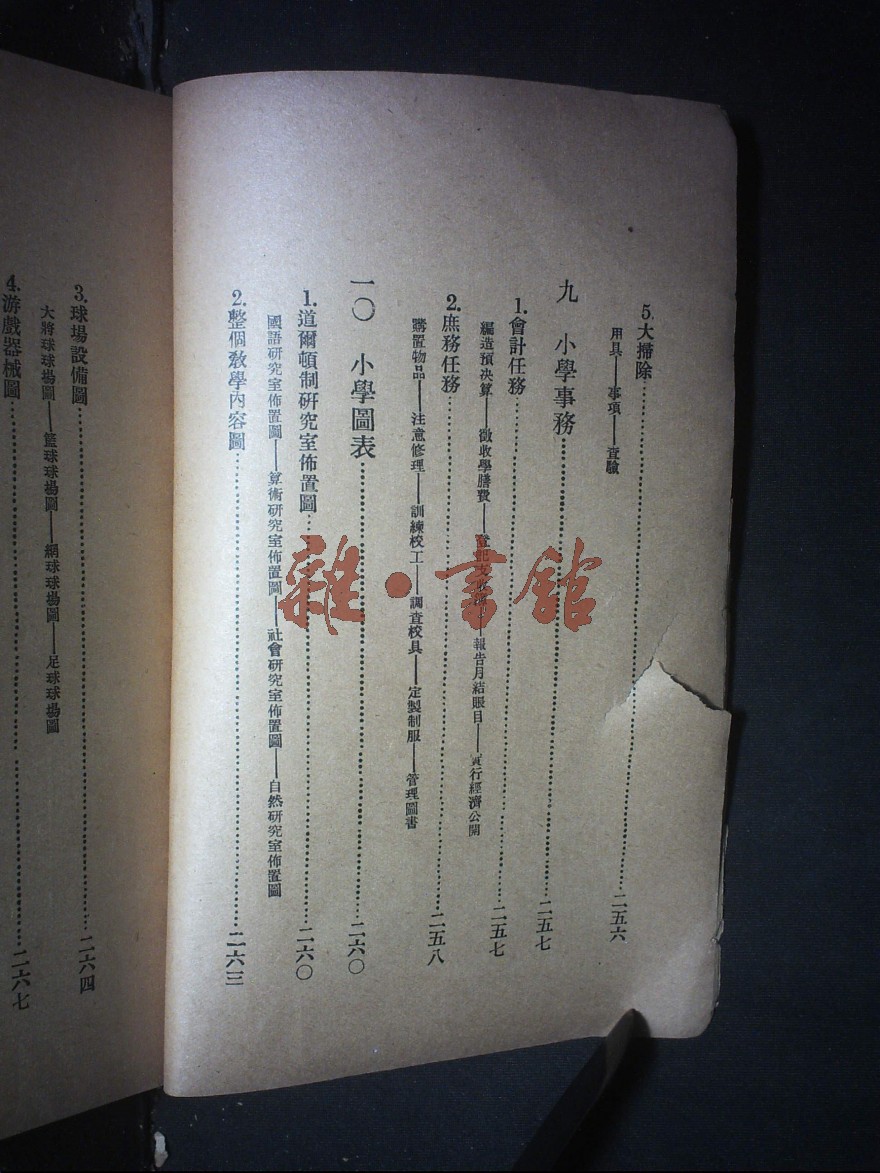 5.大掃除……二五六
用具——事項——查驗
九　小學事務……二五七
1.會計任務……二五七
編造預決算——徵收學膳費——報告月結賬目——實行經濟公開
2.庶務任務……二五八
購置物品——注意修理——訓練校工——調查校具——定製制服——管理圖書
一〇　小學圖表……二六〇
1.道爾頓制研究室佈置圖……二六〇
國語研究室佈置圖——算術研究室佈置圖——社會研究室佈置圖——自然研究室佈置圖
2.整個敎學內容圖……二六三
3.球場設備圖……二六四
大將球球場圖——籃球球場圖——網球球場圖——足球球場圖
4.游戲器械圖……二六七
雜·書館